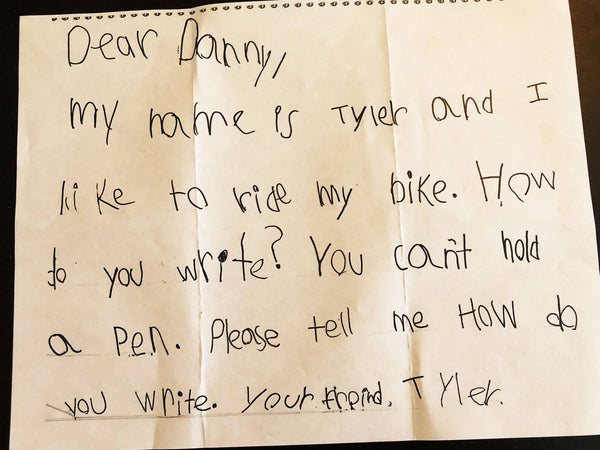 Dear Danny,
my name is Tyler and I
like to ride my bike. How
do you write? You can't hold
a pen. Please tell me HOW do
you write. your friend, Tyler.